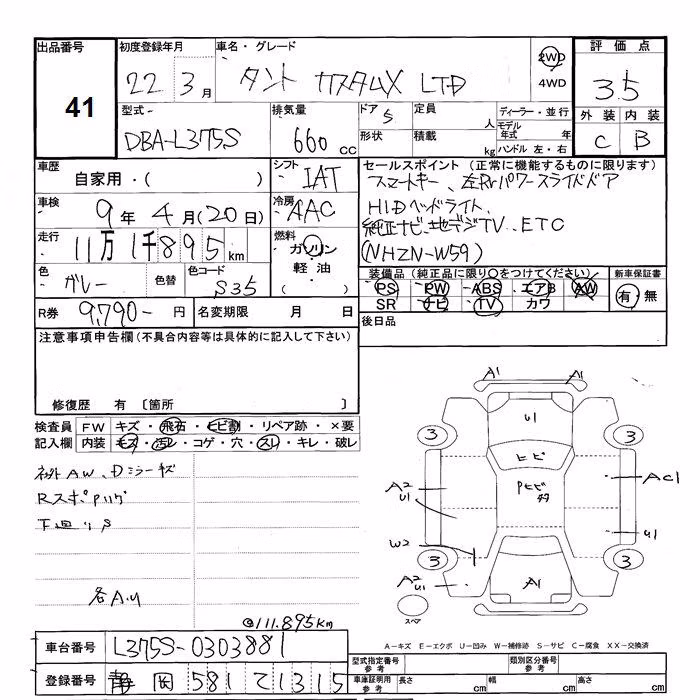 出品番号
41
初度登録年月
22 3月
車名・グレード
タント カスタムX LTD
2WD
4WD
評価点
3.5
外装 内装
C B
型式
DBA-L375S
排気量
660 cc
ドア 5
形状
定員 人
積載 kg
ディーラー・並行
モデル年式 年
ハンドル 左・右
車歴
自家用・( )
シフト
IAT
車検
9年 4月(20日)
冷房
AAC
走行
11万1千895 km
燃料
ガソリン
軽油
( )
色
グレー
色替
色コード
S35
R券 9,790- 円
名変期限 月 日
セールスポイント(正常に機能するものに限ります)
スマートキー、左Rrパワースライドドア
HIDヘッドライト、
純正ナビ、地デジTV、ETC
(NHZN-W59)
装備品(純正品に限り○をつけてください)
PS PW ABS エアB AW
SR ナビ TV カワ
新車保証書
有・無
後日品
注意事項申告欄(不具合内容等は具体的に記入して下さい)
修復歴 有〔箇所 〕
検査員記入欄
FW キズ・飛石・ヒビ割・リペア跡・×要
内装 キズ・汚レ・コゲ・穴・スレ・キレ・破レ
AW、Dミラーキズ
下廻りS
各A.U
@111.895km
A1 A1
U1
3 3
ヒビ
A2 U1
AC1
W2
U1
3 3
A2 U1
A1
スペア
A-キズ E-エクボ U-凹み W-補修跡 S-サビ C-腐食 XX-交換済
車台番号
L375S-0303881
登録番号
静岡 581 て 1315
型式指定番号 参考
類別区分番号 参考
車庫証明用 参考
長さ cm
幅 cm
高さ cm